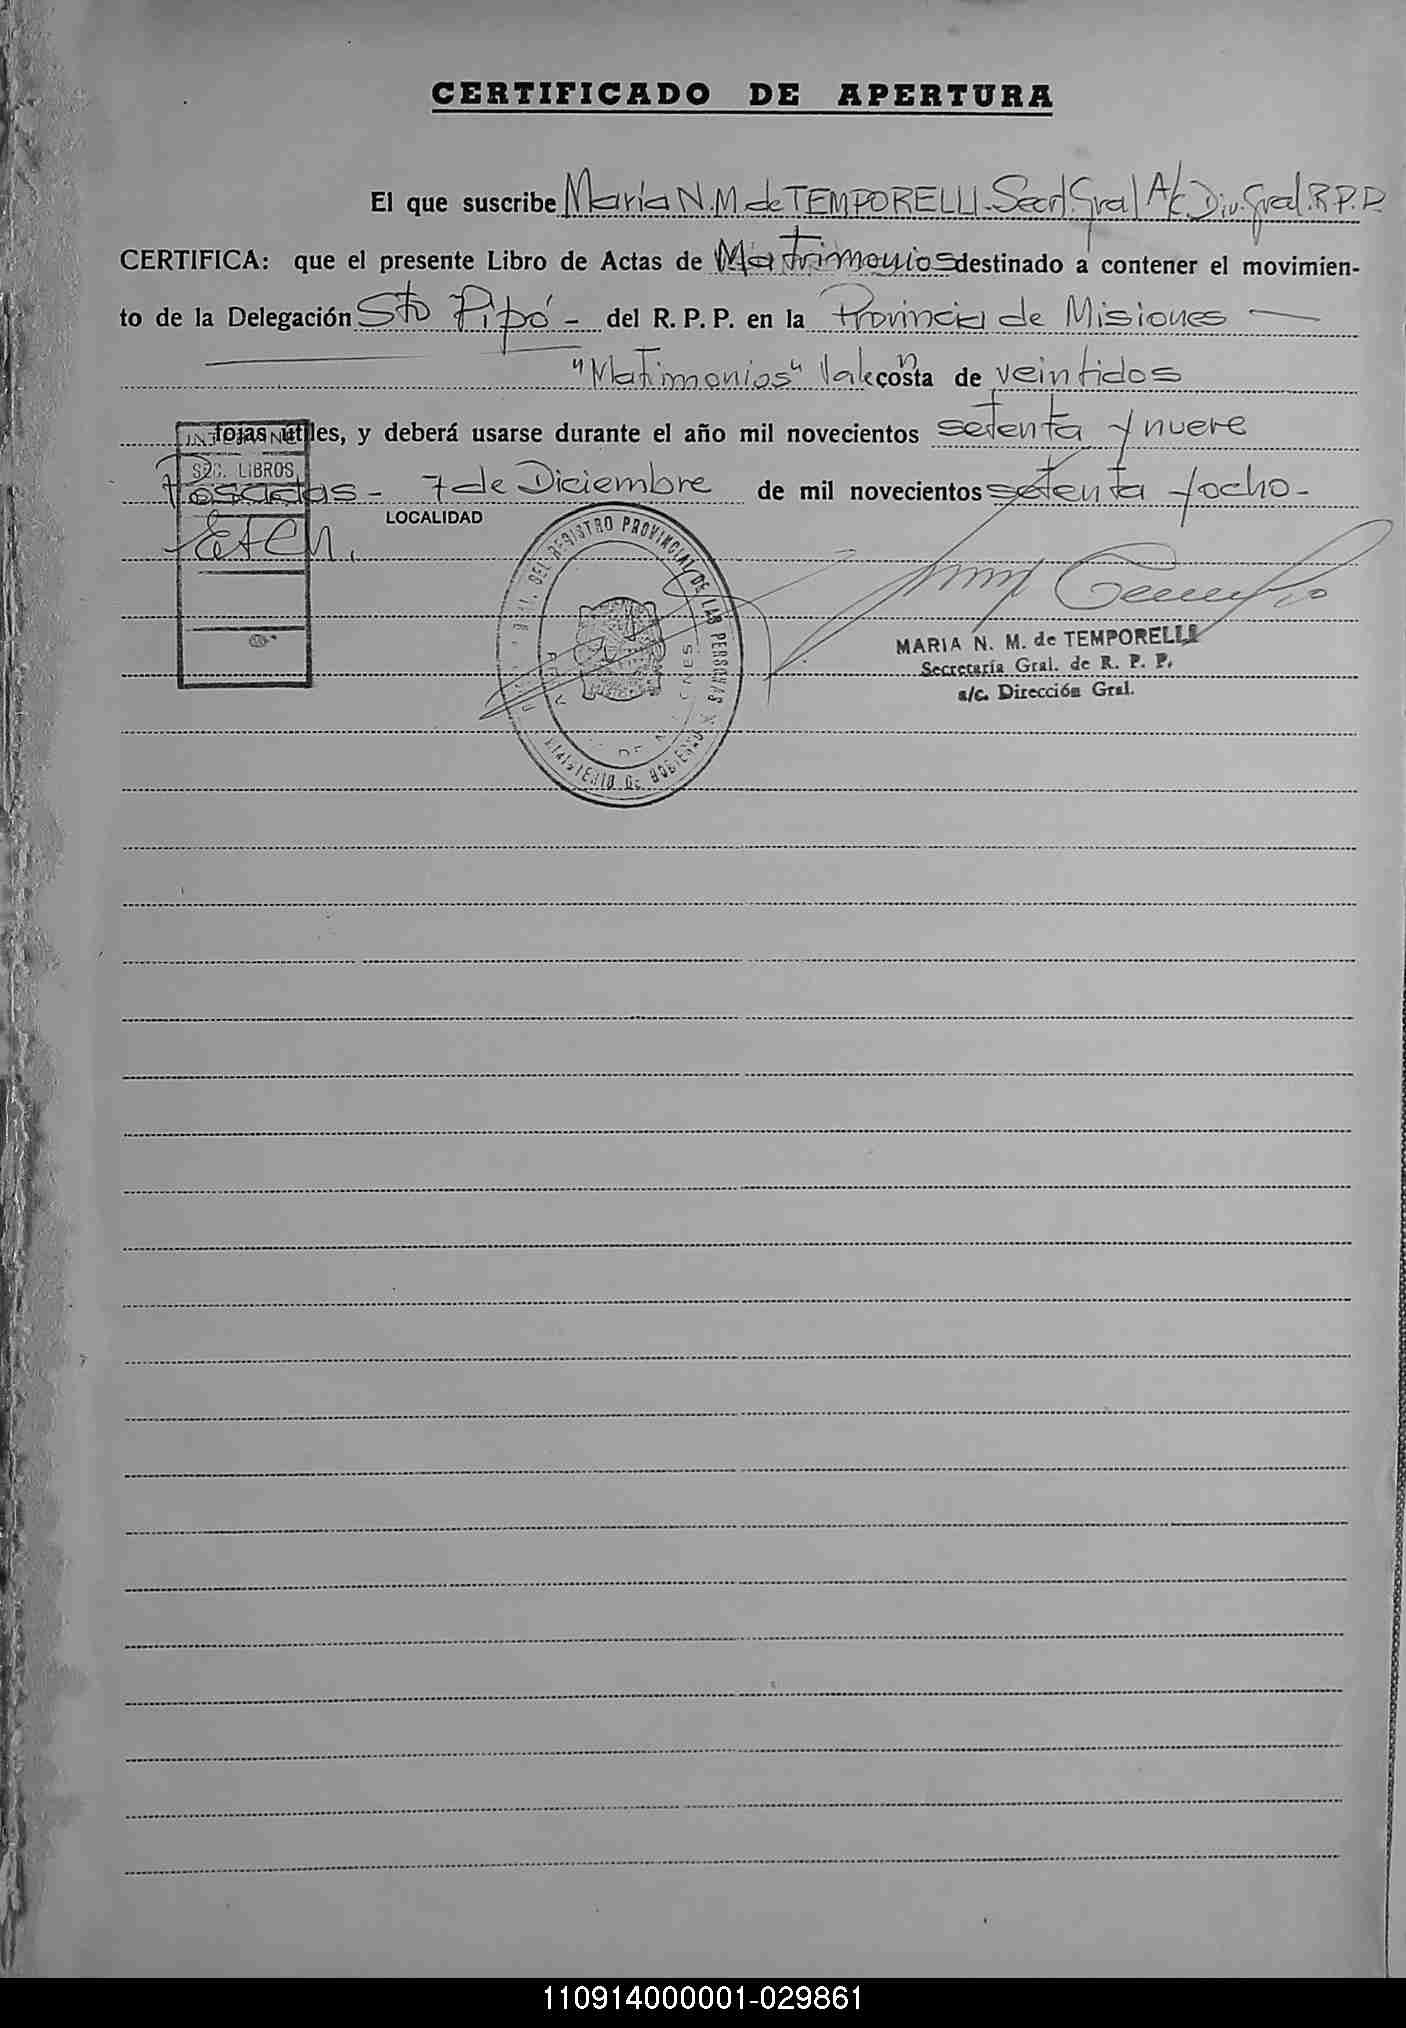 CERTIFICADO DE APERTURA
El que suscribe María N.M. de TEMPORELLI. Secr. Gral A/c. Div. Gral. R.P.P.
CERTIFICA: que el presente Libro de Actas de Matrimonios destinado a contener el movimien-
to de la Delegación Sto Pipó - del R. P. P. en la Provincia de Misiones
"Matimonios" Vale consta de veintidos
fojas útiles, y deberá usarse durante el año mil novecientos setenta y nueve
SEC. LIBROS
Posadas - 7 de Diciembre de mil novecientos setenta y ocho -
LOCALIDAD
DEL REGISTRO PROVINCIAL DE LAS PERSONAS
MINISTERIO DE GOBIERNO
MARIA N. M. de TEMPORELLI
Secretaría Gral. de R. P. P.
a/c. Dirección Gral.
110914000001-029861